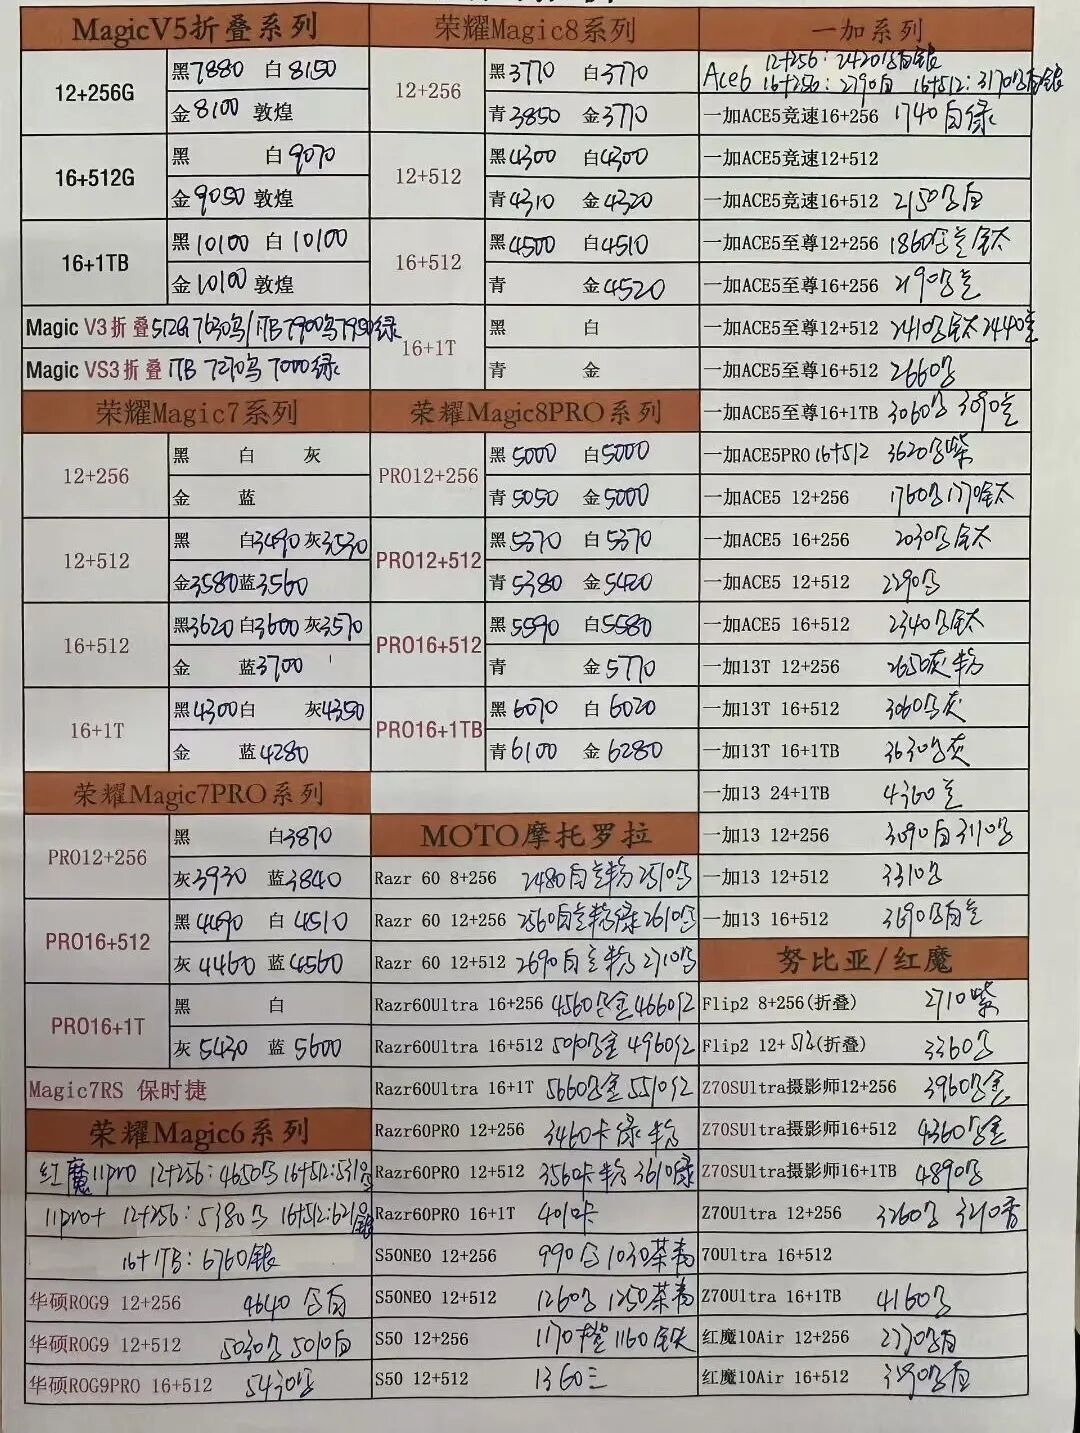 MagicV5折叠系列
12+256G
黑7880 白8150
金8100 敦煌
16+512G
黑 白9070
金9050 敦煌
16+1TB
黑10100 白10100
金10100 敦煌
Magic V3折叠512G 7630 1TB 7900 7950绿
Magic VS3折叠1TB 7270 7000绿
荣耀Magic7系列
12+256
黑 白 灰
金 蓝
12+512
黑 白3490 灰3530
金3580 蓝3560
16+512
黑3620 白3600 灰3570
金 蓝3700
16+1T
黑4300 白 灰4350
金 蓝4280
荣耀Magic7PRO系列
PRO12+256
黑 白3870
灰3930 蓝3840
PRO16+512
黑4490 白4510
灰4460 蓝4560
PRO16+1T
黑 白
灰5430 蓝5600
Magic7RS 保时捷
荣耀Magic6系列
红魔11pro 12+256:4650 16+512:5310
11pro+ 12+256:5380 16+512:6210银
16+1TB:6760银
华硕ROG9 12+256 4640 白
华硕ROG9 12+512 5030 5010白
华硕ROG9PRO 16+512 5430
荣耀Magic8系列
12+256
黑3770 白3770
青3850 金3770
12+512
黑4300 白4300
青4310 金4320
16+512
黑4500 白4510
青 金4520
16+1T
黑 白
青 金
荣耀Magic8PRO系列
PRO12+256
黑5000 白5000
青5050 金5000
PRO12+512
黑5370 白5370
青5380 金5420
PRO16+512
黑5590 白5580
青 金5770
PRO16+1TB
黑6070 白6020
青6100 金6280
MOTO摩托罗拉
Razr 60 8+256 2480白 粉2510
Razr 60 12+256 2560白 粉绿2610
Razr 60 12+512 2690白 粉2710
Razr60Ultra 16+256 4560 金4660红
Razr60Ultra 16+512 5010 金4960红
Razr60Ultra 16+1T 5660 金5510红
Razr60PRO 12+256 3460卡绿粉
Razr60PRO 12+512 3560卡粉3610绿
Razr60PRO 16+1T 4010卡
S50NEO 12+256 990 1030茶青
S50NEO 12+512 1260 1250茶青
S50 12+256 1170橙1160钛
S50 12+512 1360三
一加系列
12+256:2420 白银
Ace6 16+256:2790白 16+512:3170 白银
一加ACE5竞速16+256 1740白绿
一加ACE5竞速12+512
一加ACE5竞速16+512 2150 白
一加ACE5至尊12+256 1860 钛
一加ACE5至尊16+256 2190
一加ACE5至尊12+512 2410 钛2440
一加ACE5至尊16+512 2660
一加ACE5至尊16+1TB 3060 3090
一加ACE5PRO 16+512 3620 紫
一加ACE5 12+256 1760 1770钛
一加ACE5 16+256 2030 钛
一加ACE5 12+512 2290
一加ACE5 16+512 2340 钛
一加13T 12+256 2650灰粉
一加13T 16+512 3060 灰
一加13T 16+1TB 3630 灰
一加13 24+1TB 4360
一加13 12+256 3090白3110
一加13 12+512 3310
一加13 16+512 3690 白
努比亚/红魔
Flip2 8+256(折叠) 2710紫
Flip2 12+512(折叠) 3360
Z70SUltra摄影师12+256 3960 金
Z70SUltra摄影师16+512 4360 金
Z70SUltra摄影师16+1TB 4890
Z70Ultra 12+256 3260 3210香
70Ultra 16+512
Z70Ultra 16+1TB 4160
红魔10Air 12+256 2770 白
红魔10Air 16+512 3190 白